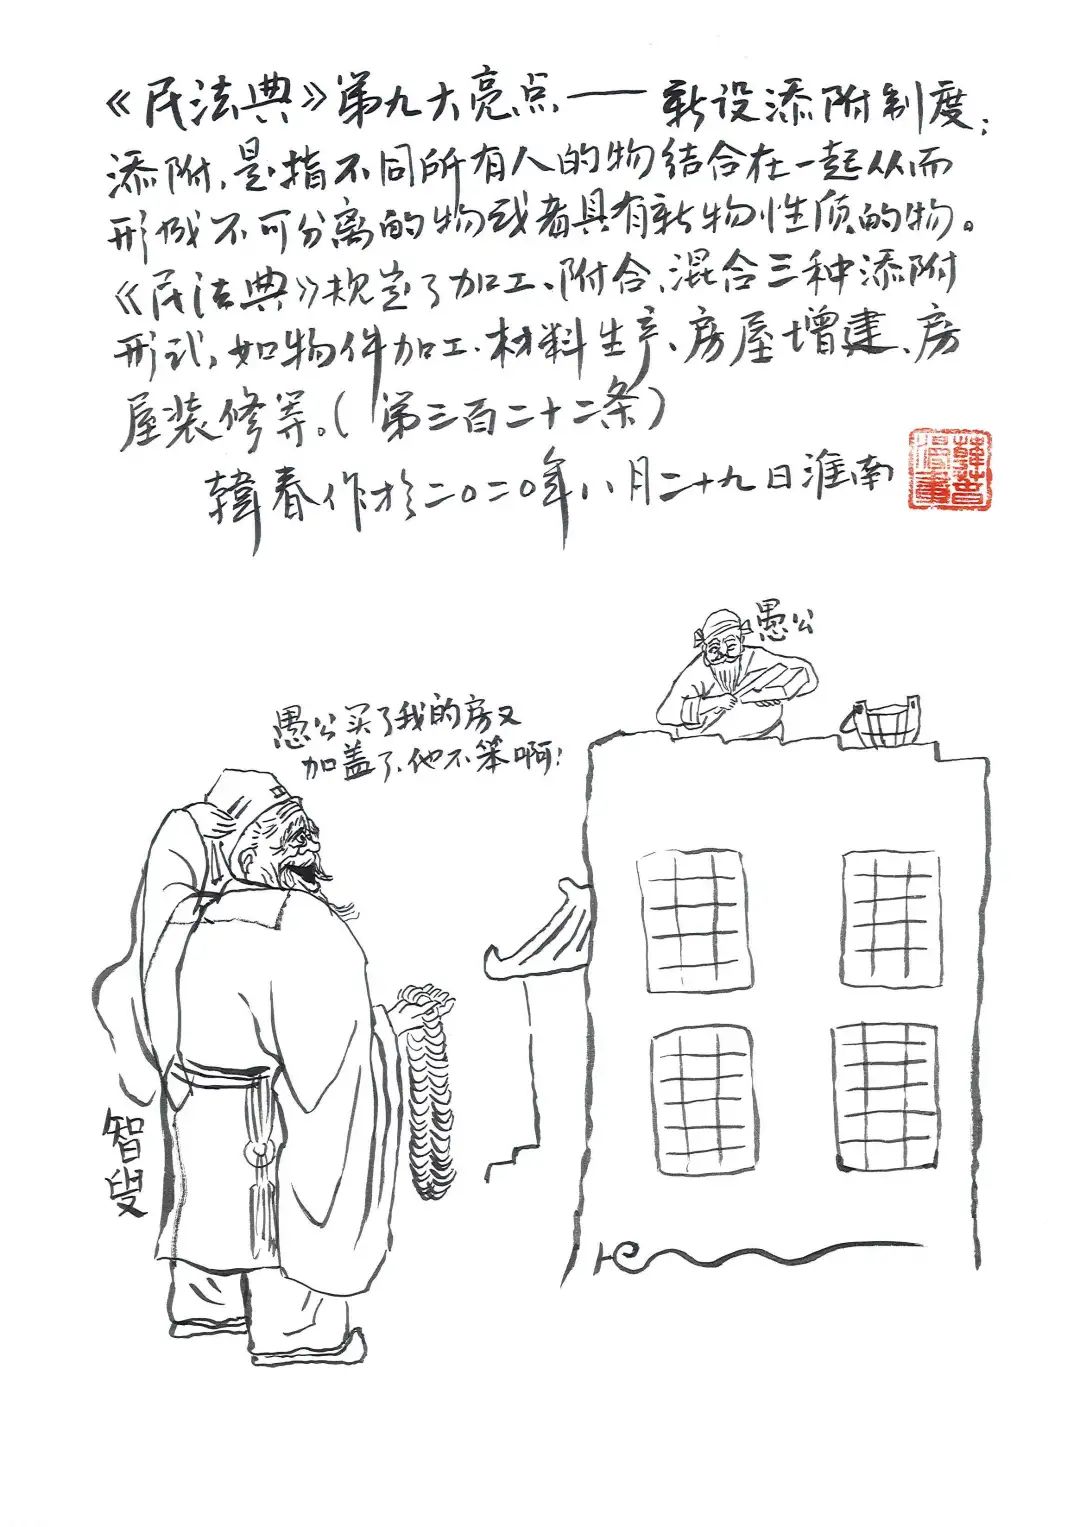 《民法典》第九大亮点——新设添附制度；
添附，是指不同所有人的物结合在一起从而
形成不可分离的物或者具有新物性质的物。
《民法典》规定了加工、附合、混合三种添附
形式，如物件加工、材料生产、房屋增建、房
屋装修等。(第三百二十二条)
韓春作於二〇二〇年八月二十九日淮南
韓春漫画
愚公
愚公买了我的房又
加盖了、他不笨啊！
智叟